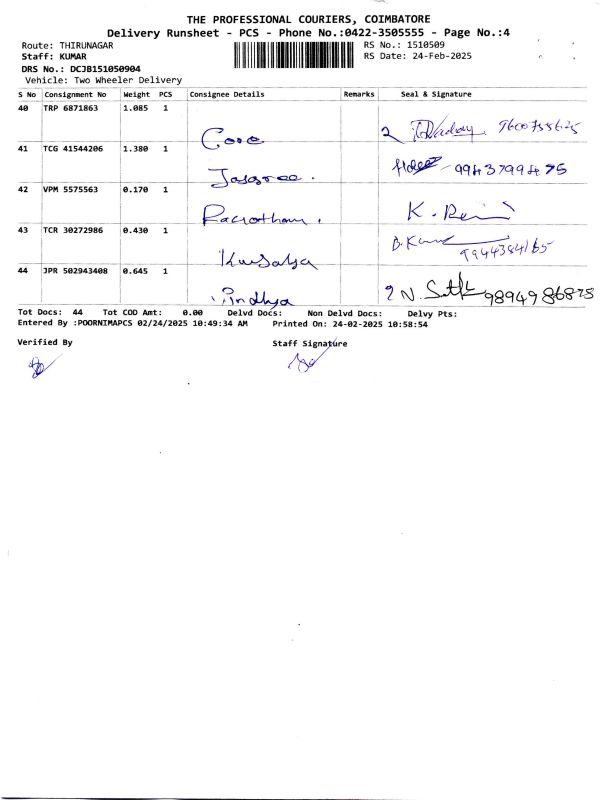 THE PROFESSIONAL COURIERS, COIMBATORE
Delivery Runsheet - PCS - Phone No.:0422-3505555 - Page No.:4
Route: THIRUNAGAR RS No.: 1510509
Staff: KUMAR RS Date: 24-Feb-2025
DRS No.: DCJB151050904
Vehicle: Two Wheeler Delivery
S No Consignment No Weight PCS Consignee Details Remarks Seal & Signature
40 TRP 6871863 1.085 1
2
41 TCG 41544206 1.380 1
9943799475
42 VPM 5575563 0.170 1
K.
43 TCR 30272986 0.430 1
Kausalya 9944384165
44 JPR 502943408 0.645 1
N. 9894986878
Tot Docs: 44 Tot COD Amt: 0.00 Delvd Docs: Non Delvd Docs: Delvy Pts:
Entered By :POORNIMAPCS 02/24/2025 10:49:34 AM Printed On: 24-02-2025 10:58:54
Verified By Staff Signature